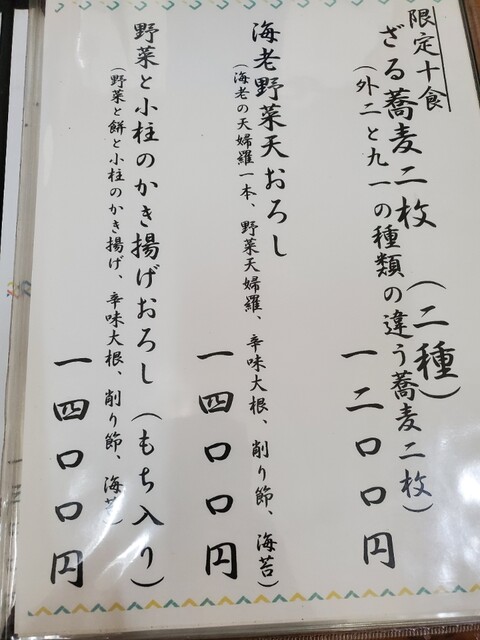 限定十食
ざる蕎麦二枚（二種）
（外二と九一の種類の違う蕎麦二枚）
一二〇〇円
海老野菜天おろし
（海老の天婦羅一本、野菜天婦羅、辛味大根、削り節、海苔）
一四〇〇円
野菜と小柱のかき揚げおろし（もち入り）
（野菜と餅と小柱のかき揚げ、辛味大根、削り節、海苔）
一四〇〇円